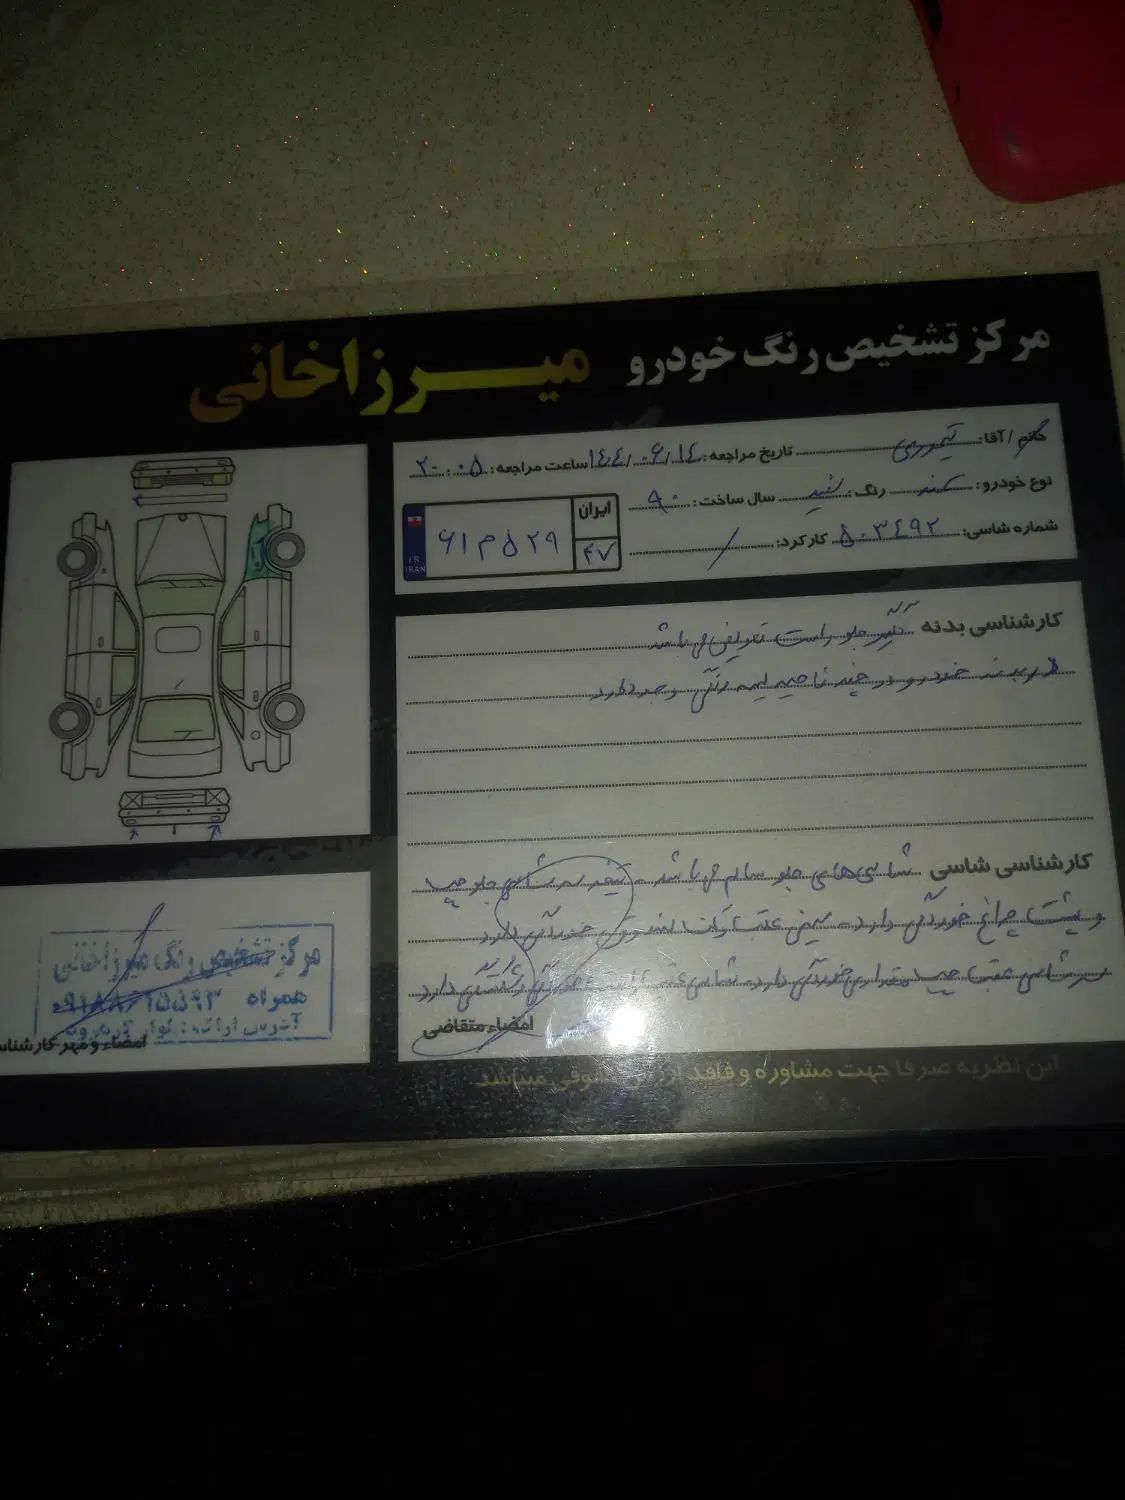 مرکز تشخیص رنگ خودرو میرزاخانی
خانم / آقا: تیموری تاریخ مراجعه: ۱۴۰۴/۰۶/۱۴ ساعت مراجعه: ۲۰:۰۵
نوع خودرو: سمند رنگ: سفید سال ساخت: ۹۰
شماره شاسی: ۵۰۳۴۹۲ کارکرد: /
ایران
۴۷
۶۱ م ۵۲۹
I.R.
IRAN
کارشناسی بدنه گلگیر جلو راست تعویض می باشد
دور بدنه خودرو در چند ناحیه لیسه رنگی وجود دارد
کارشناسی شاسی شاسی‌های جلو سالم می باشد سر شاسی جلو چپ
و پشت چراغ خوردگی دارد سینی عقب خوردگی دارد
سر شاسی عقب چپ مقداری خوردگی دارد شاسی عقب دارد
امضاء متقاضی
مرکز تشخیص رنگ میرزاخانی
همراه
امضاء و مهر کارشناس
این نظریه صرفا جهت مشاوره و فاقد ارزش حقوقی میباشد